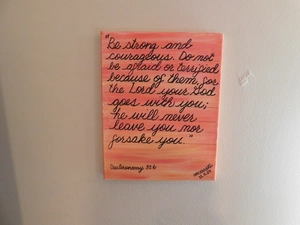 "Be strong and
courageous. Do not
be afraid or terrified
because of them, for
the Lord your God
goes with you;
he will never
leave you nor
forsake you."
Deuteronomy 31:6